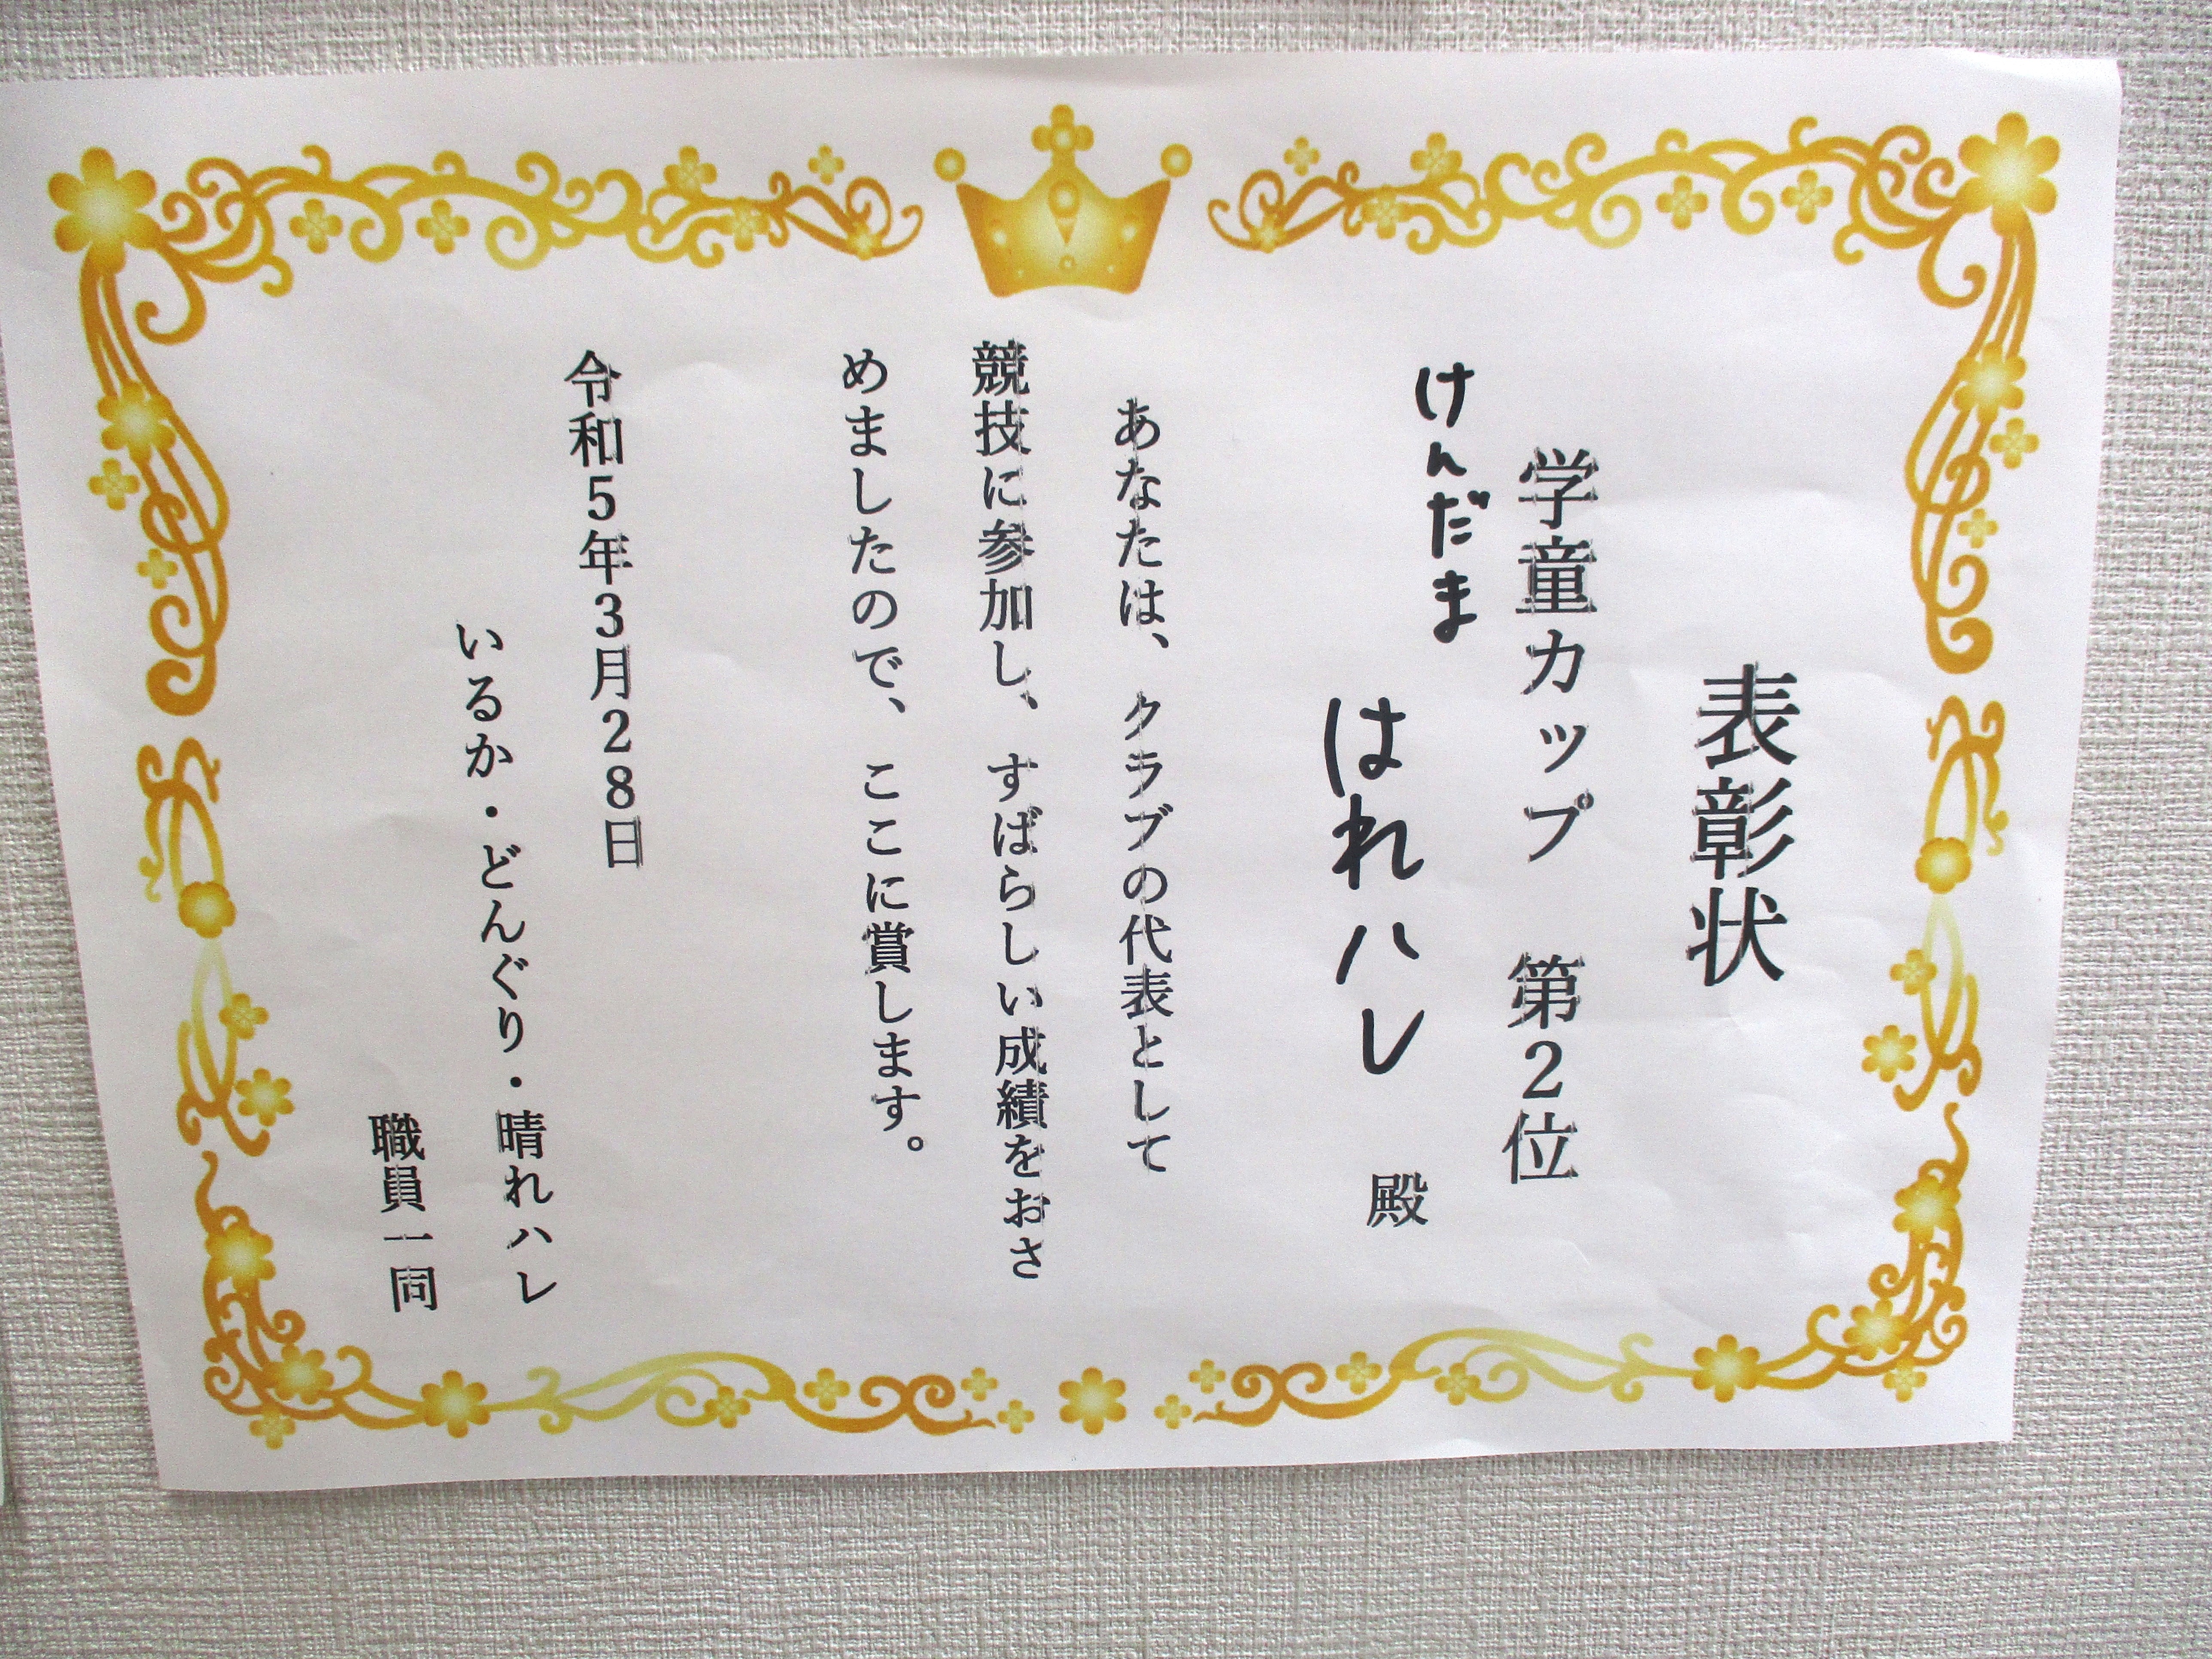 表彰状
学童カップ　第2位
けんだま
はれハレ　殿
あなたは、クラブの代表として
競技に参加し、すばらしい成績をおさ
めましたので、ここに賞します。
令和5年3月28日
いるか・どんぐり・晴れハレ
職員一同